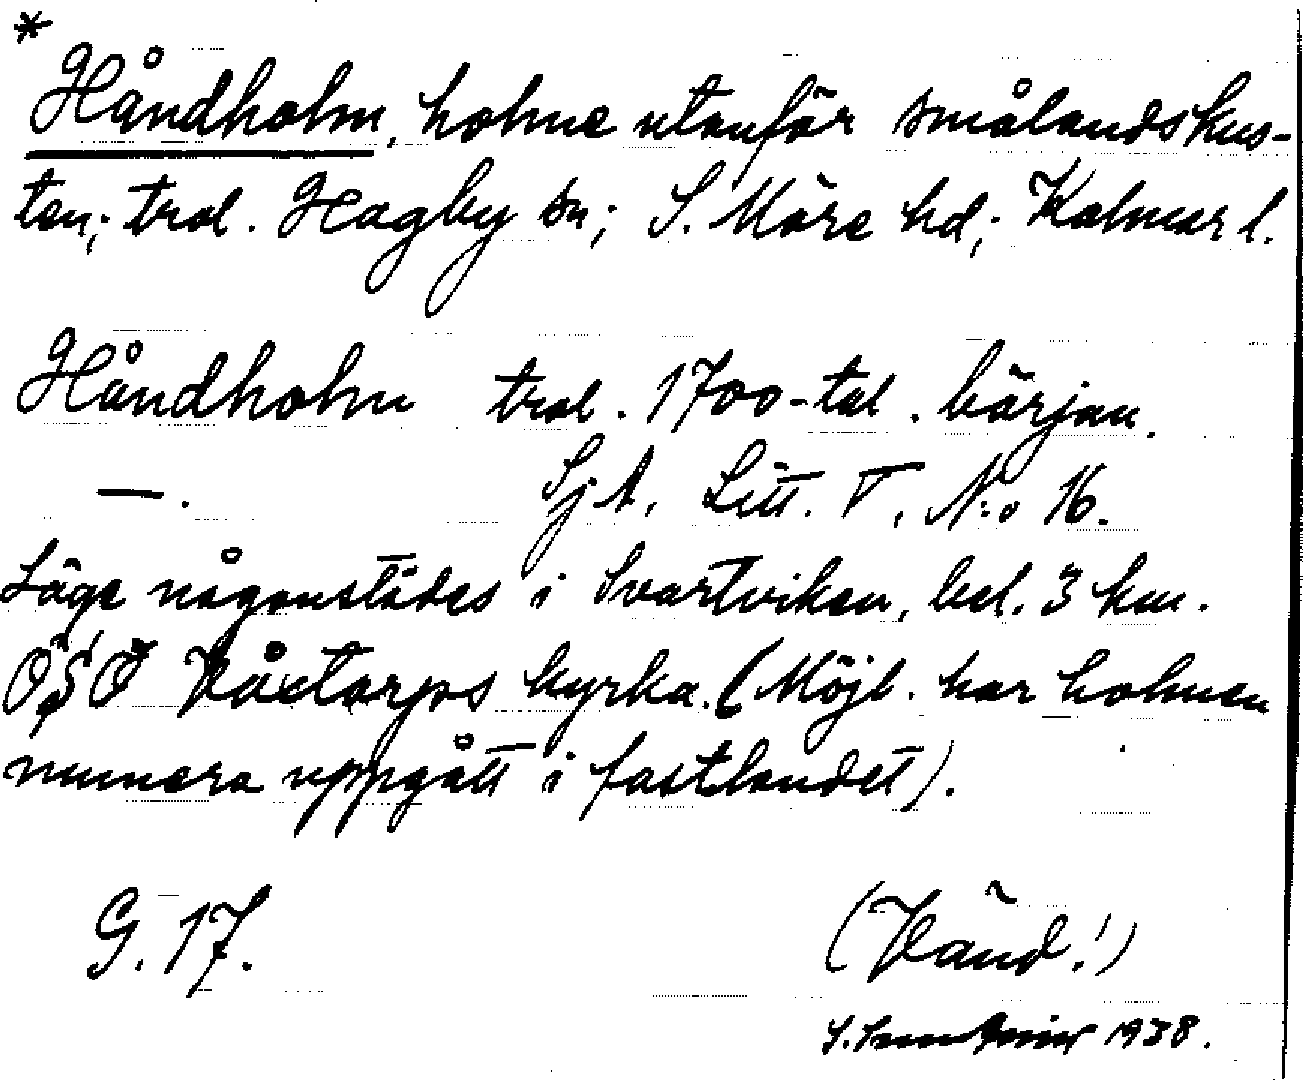 *
Håndholm, holme utanför smålandskus-
ten; trol. Hagby sn; S. Möre hd; Kalmar l.
Håndholm trol. 1700-tal. början.
—. Sj A, Litt. V, N:o 16.
Läge någonstädes i Svartviken, bel. 3 km.
OSO Våxtorps kyrka. (Möjl. har holmen
numera uppgått i fastlandet).
G. 17. (Vänd!)
1938.